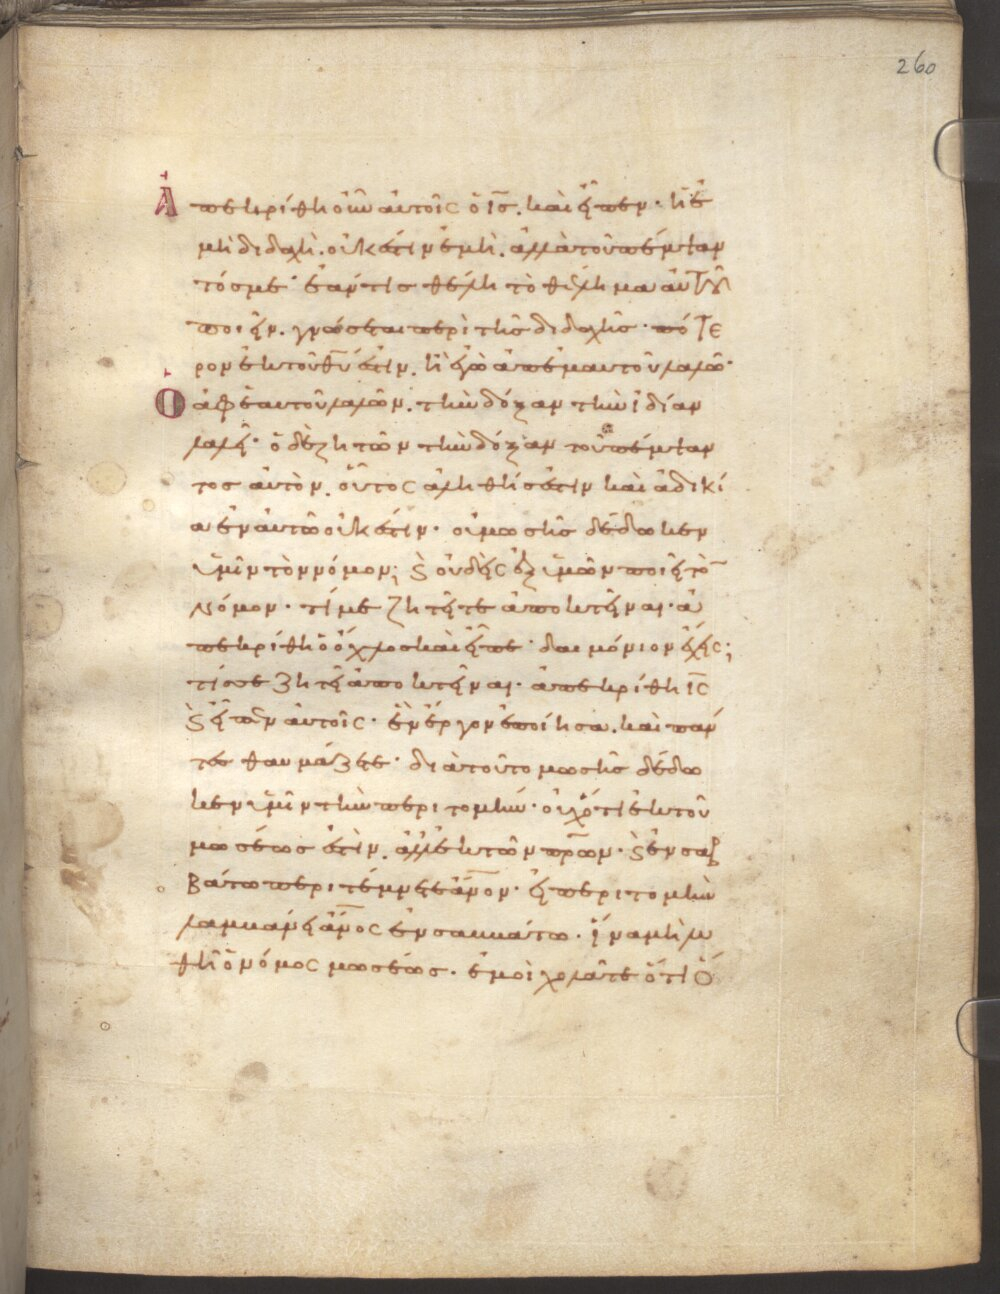 260
Ἀπεκρίθη οὖν αὐτοῖς ὁ ι̅ς̅. καὶ εἶπεν· ἡ ἐ
μὴ διδαχὴ. οὐκ ἔστιν ἐμὴ. ἀλλὰ τοῦ πέμψαν
τόσ με· ἐάν τις θέλη τὸ θέλημα αὐτοῦ
ποιεῖν. γνώσεται περὶ τῆς διδαχῆς· πότε
ρον ἐκ τοῦ θ̅υ̅ ἐστιν. ἢ ἐγὼ ἀπ' ἐμαυτοῦ λαλῶ·
Ὁ ἀφ' ἑαυτοῦ λαλῶν. τὴν δόξαν τὴν ἰδίαν
λαλεῖ· ὁ δὲ ζητῶν τὴν δόξαν τοῦ πέμψαν
τος αὐτὸν. οὗτος ἀληθής ἐστιν καὶ ἀδικί
α ἐν αὐτῶ οὐκ ἔστιν· οὐ μωσῆς δέδωκεν
ὑμῖν τὸν νόμον; ϗ οὐδεὶς ἐξ ὑμῶν ποιεῖ τὸ̅
νόμον· τί με ζητεῖτε ἀποκτεῖναι· ἀ
πεκρίθη ὁ ὄχλος καὶ εἶπε· δαιμόνιον ἔχεις;
τίς σε ζητεῖ ἀποκτεῖναι· ἀπεκρίθη ι̅ς̅
ϗ εἶπεν αὐτοῖς· ἓν ἔργον ἐποίησα. καὶ πάν
τες θαυμάζετε· διὰ τοῦτο μωσῆς δέδω
κεν ὑμῖν τὴν περιτομήν· οὐχ ὅτι ἐκ τοῦ
μωσέως ἐστὶν. ἀλλ' ἐκ τῶν π̅ρ̅ω̅ν· ϗ ἐν σαβ
βάτω περιτέμνετε α̅ν̅ο̅ν· εἰ περιτομὴν
λαμβάνει α̅ν̅ο̅ς ἐν σαββάτω· ἵνα μὴ λυ
θῆ ὁ νόμος μωσέως· ἐμοὶ χολᾶτε ὅτι ὅ